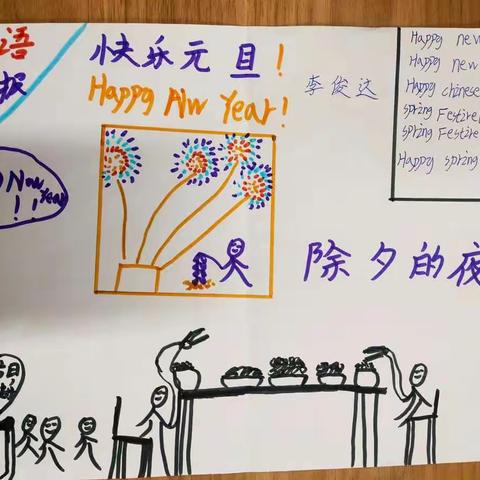 语
报
快乐元旦!
Happy New Year!
李俊达
Happy new
Happy new
Happy chinese
spring Festivel
spring Festive
Happy spring
Now
Year
!!
除夕的夜